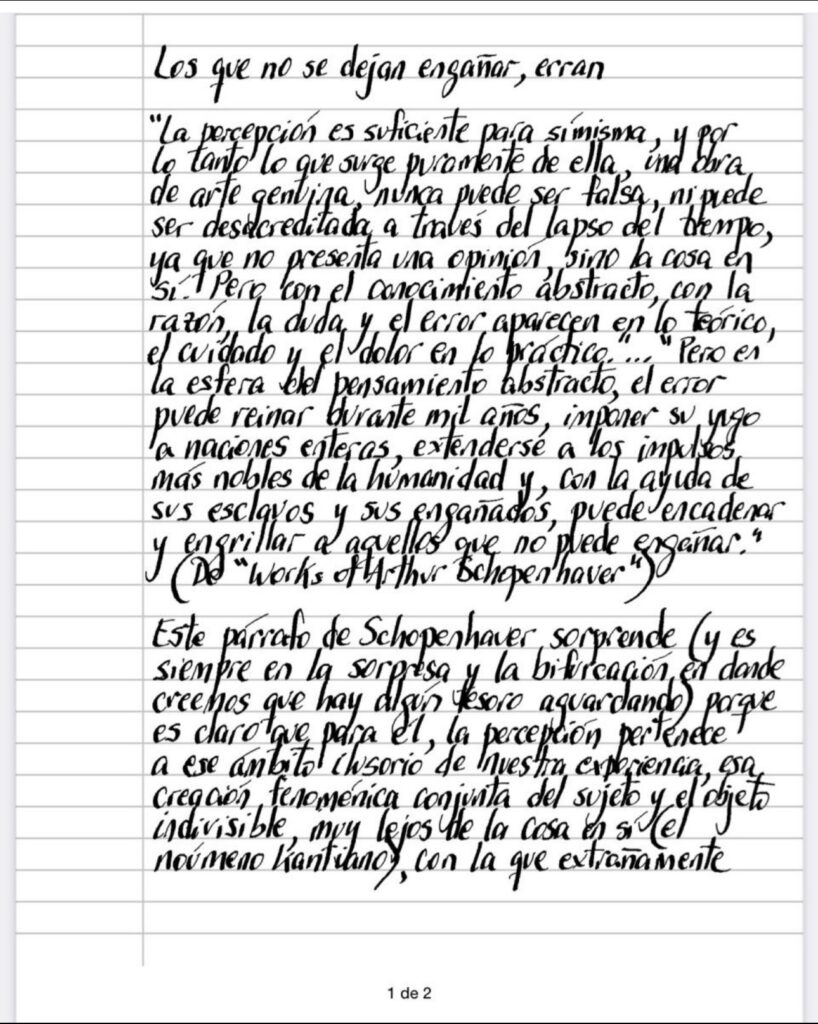 Los que no se dejan engañar, erran
"La percepción es suficiente para símisma, y por
lo tanto lo que surge puramente de ella, una obra
de arte genuina, nunca puede ser falsa, ni puede
ser desacreditada a través del lapso del tiempo,
ya que no presenta una opinión, sino la cosa en
sí." Pero con el conocimiento abstracto, con la
razón, la duda y el error aparecen en lo teórico,
el cuidado y el dolor en lo práctico."..." Pero en
la esfera del pensamiento abstracto, el error
puede reinar durante mil años, imponer su yugo
a naciones enteras, extenderse a los impulsos
más nobles de la humanidad y, con la ayuda de
sus esclavos y sus engañados, puede encadenar
y engrillar a aquellos que no puede engañar."
(De "Works of Arthur Schopenhauer")
Este párrafo de Schopenhauer sorprende (y es
siempre en la sorpresa y la bifurcación en donde
creemos que hay algún tesoro aguardando) porque
es claro que para él, la percepción pertenece
a ese ámbito ilusorio de nuestra experiencia, esa
creación fenoménica conjunta del sujeto y el objeto
indivisible, muy lejos de la cosa en sí (el
noúmeno kantiano), con la que extrañamente
1 de 2